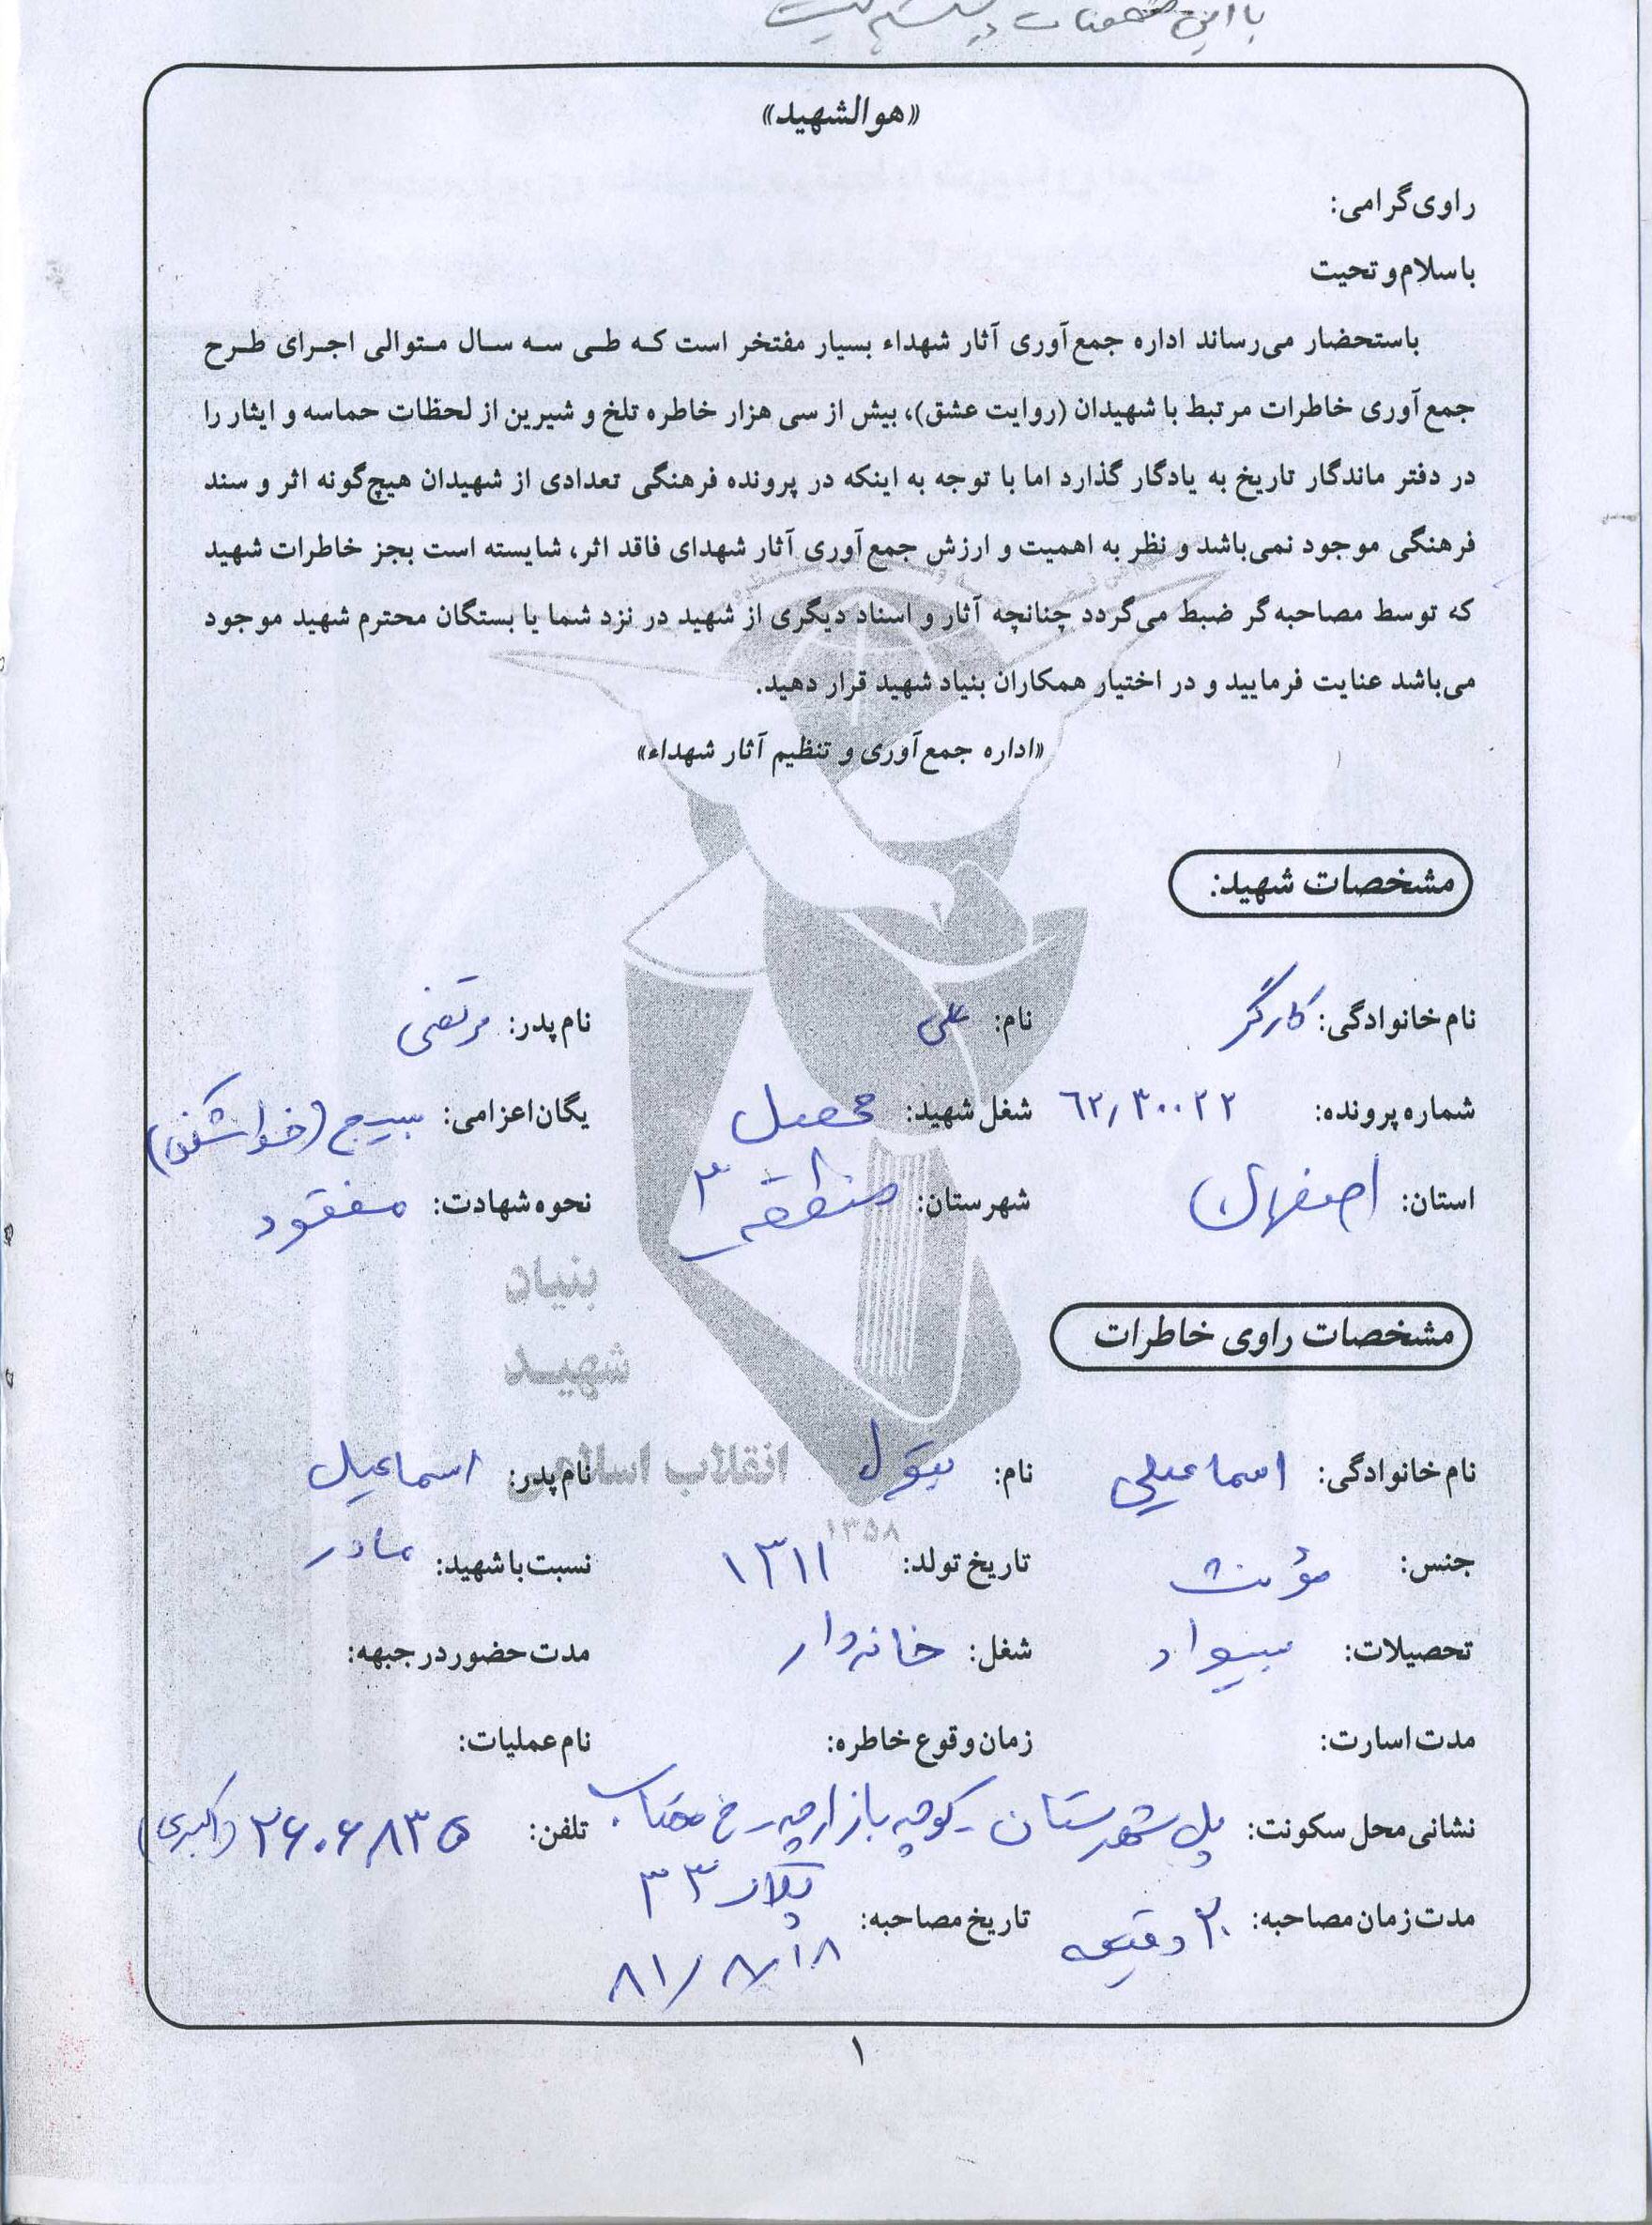 با این مشخصات در سیستم نیست
«هوالشهید»
راوی گرامی:
با سلام و تحیت
باستحضار می‌رساند اداره جمع‌آوری آثار شهداء بسیار مفتخر است که طی سه سال متوالی اجرای طرح
جمع‌آوری خاطرات مرتبط با شهیدان (روایت عشق)، بیش از سی هزار خاطره تلخ و شیرین از لحظات حماسه و ایثار را
در دفتر ماندگار تاریخ به یادگار گذارد اما با توجه به اینکه در پرونده فرهنگی تعدادی از شهیدان هیچ‌گونه اثر و سند
فرهنگی موجود نمی‌باشد و نظر به اهمیت و ارزش جمع‌آوری آثار شهدای فاقد اثر، شایسته است بجز خاطرات شهید
که توسط مصاحبه‌گر ضبط می‌گردد چنانچه آثار و اسناد دیگری از شهید در نزد شما یا بستگان محترم شهید موجود
می‌باشد عنایت فرمایید و در اختیار همکاران بنیاد شهید قرار دهید.
«اداره جمع‌آوری و تنظیم آثار شهداء»
مشخصات شهید:
نام خانوادگی: کارگر نام: علی نام پدر: مرتضی
شماره پرونده: ۶۲/۳۰۰۲۲ شغل شهید: محصل یگان اعزامی: بسیج
استان: اصفهان شهرستان: منطقه ۳ نحوه شهادت: مفقود
بنیاد
شهید
انقلاب اسلامی
۱۳۵۸
مشخصات راوی خاطرات
نام خانوادگی: اسماعیلی نام: بتول نام پدر: اسماعیل
جنس: مؤنث تاریخ تولد: ۱۳۱۱ نسبت با شهید: مادر
تحصیلات: بیسواد شغل: خانه‌دار مدت حضور در جبهه:
مدت اسارت: زمان وقوع خاطره: نام عملیات:
نشانی محل سکونت: پل شهرستان - کوچه بازارچه - خ مهتاب تلفن: ۲۶۰۶۸۳۵ (اکبری)
پلاک ۳۳
مدت زمان مصاحبه: ۳۰ دقیقه تاریخ مصاحبه: ۸۱/۸/۱۸
۱